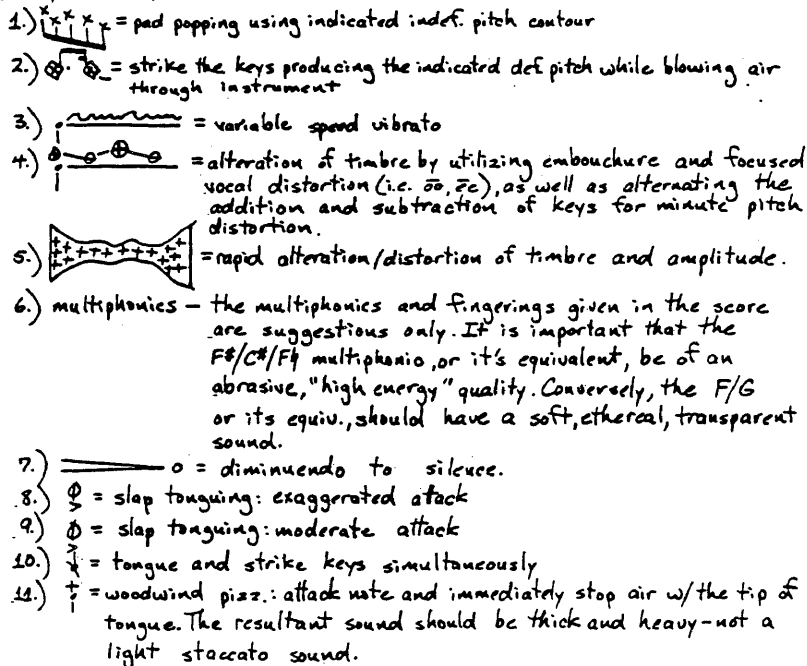 1.) = pad popping using indicated indef. pitch contour
2.) = strike the keys producing the indicated def pitch while blowing air
through instrument
3.) = variable speed vibrato
4.) = alteration of timbre by utilizing embouchure and focused
vocal distortion (i.e. o̅o̅, e̅e̅), as well as alternating the
addition and subtraction of keys for minute pitch
distortion.
5.) = rapid alteration/distortion of timbre and amplitude.
6.) multiphonics – the multiphonics and fingerings given in the score
are suggestions only. It is important that the
F#/C#/F♮ multiphonic, or it's equivalent, be of an
abrasive, "high energy" quality. Conversely, the F/G
or its equiv., should have a soft, ethereal, transparent
sound.
7.) o = diminuendo to silence.
8.) = slap tonguing: exaggerated atack
9.) = slap tonguing: moderate attack
10.) = tongue and strike keys simultaneously
11.) = woodwind pizz.: attack note and immediately stop air w/the tip of
tongue. The resultant sound should be thick and heavy-not a
light staccato sound.